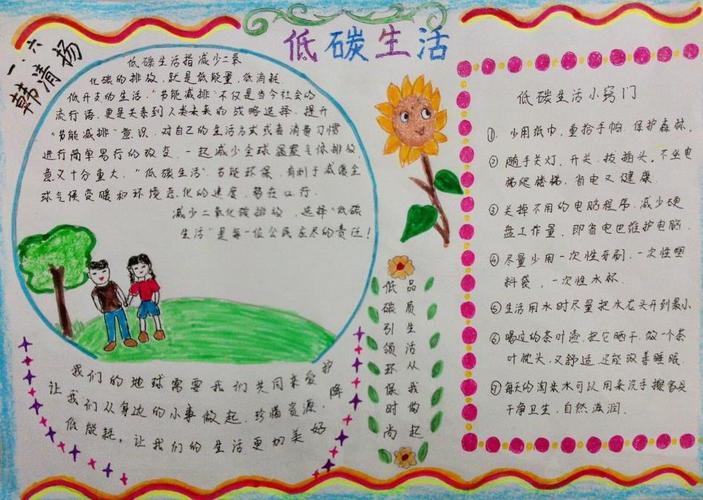 低碳生活
一.六
韩清扬
低碳生活指减少二氧
化碳的排放,就是低能量,低消耗,
低开支的生活,"节能减排"不仅是当今社会的
流行语,更是关系到人类未来的战略选择,提升
"节能减排"意识,对自己的生活方式或者消费习惯
进行简单易行的改变,一起减少全球温室气体排放,
意义十分重大,"低碳生活"节能环保,有利于减缓全
球气候变暖和环境恶化的速度,势在必行.
减少二氧化碳排放,选择"低碳
生活"是每一位公民应尽的责任!
我们的地球需要我们共同来爱护
让我们从身边的小事做起,珍惜资源,降
低能耗,让我们的生活更加美好
低碳引领环保时尚
品质生活从我做起
低碳生活小窍门
① 少用纸巾,重拾手帕,保护森林.
② 随手关灯,开关,拔插头,不坐电
梯爬楼梯,省电又健康
③ 关掉不用的电脑程序,减少硬
盘工作量,即省电也维护电脑.
④ 尽量少用一次性牙刷,一次性塑
料袋,一次性水杯.
⑤ 生活用水时尽量把水龙头开到最小
⑥ 喝过的茶叶渣,把它晒干,做一个茶
叶枕头,又舒适,还能改善睡眠.
⑦ 每天的淘米水可以用来洗手擦家具
干净卫生,自然滋润.